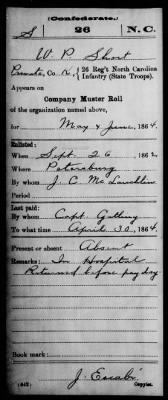 (Confederate.)
S 26 N.C.
W P Short
Private, Co. K, 26 Reg't North Carolina
Infantry (State Troops).
Appears on
Company Muster Roll
of the organization named above,
for May & June, 1864.
Enlisted:
When Sept. 26, 1862
Where Petersburg
By whom J. C. McLauchlin
Period
Last paid:
By whom Capt. Guthrey
To what time April 30, 1864.
Present or absent Absent
Remarks: In Hospital
Returned before pay day
Book mark:
(642) Copyist.